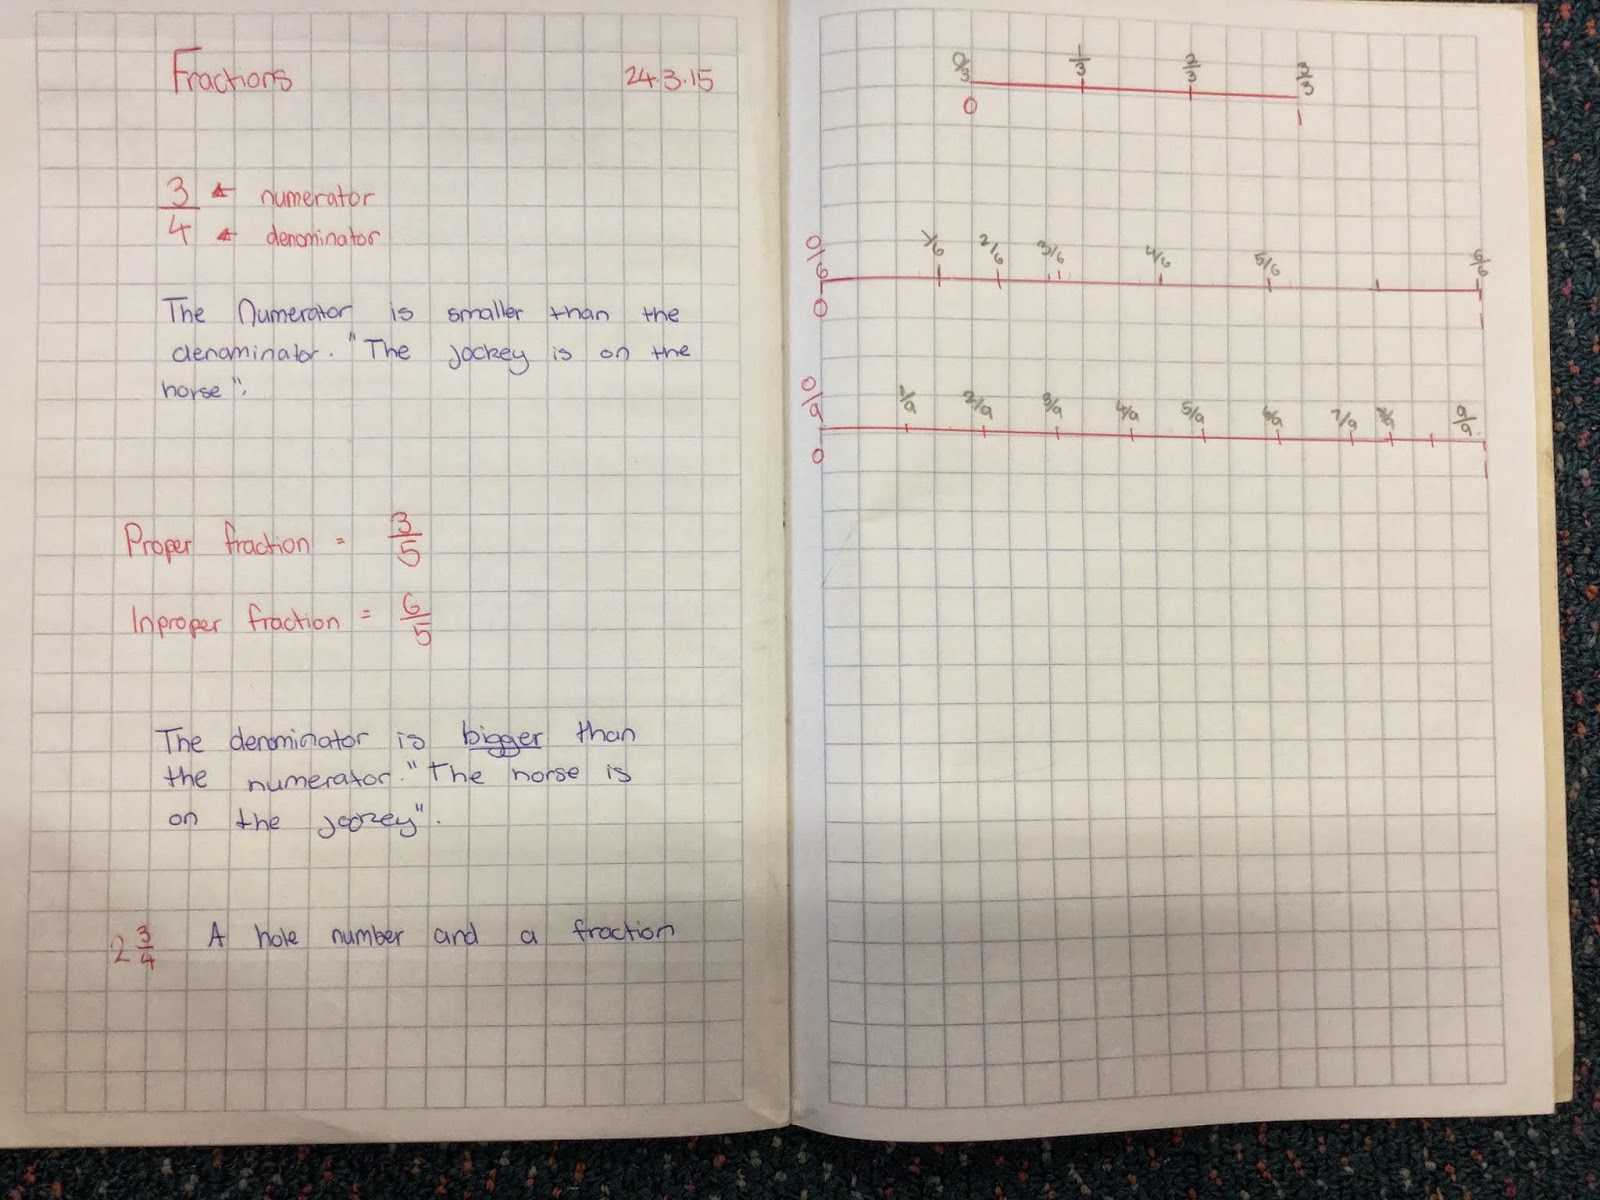 Fractions 24.3.15
3 ← numerator
4 ← denominator
The Numerator is smaller than the
denominator. "The jockey is on the
horse".
Proper fraction = 3/5
Inproper fraction = 6/5
The denominator is bigger than
the numerator. "The horse is
on the jockey".
2 3/4 A hole number and a fraction
0/3 1/3 2/3 3/3
0 1
0/6 1/6 2/6 3/6 4/6 5/6 6/6
0 1
0/9 1/9 2/9 3/9 4/9 5/9 6/9 7/9 8/9 9/9
0 1